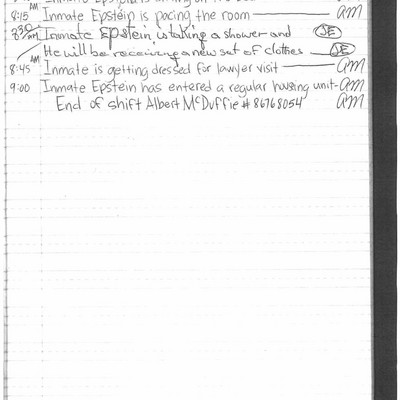 8:15 AM Inmate Epstein is pacing the room — am
8:30 AM Inmate Epstein is taking a shower and JE
He will be receiving a new set of clothes JE
8:45 AM Inmate is getting dressed for lawyer visit — am
9:00 Inmate Epstein has entered a regular housing unit- am
End of shift Albert McDuffie # 86768054 am